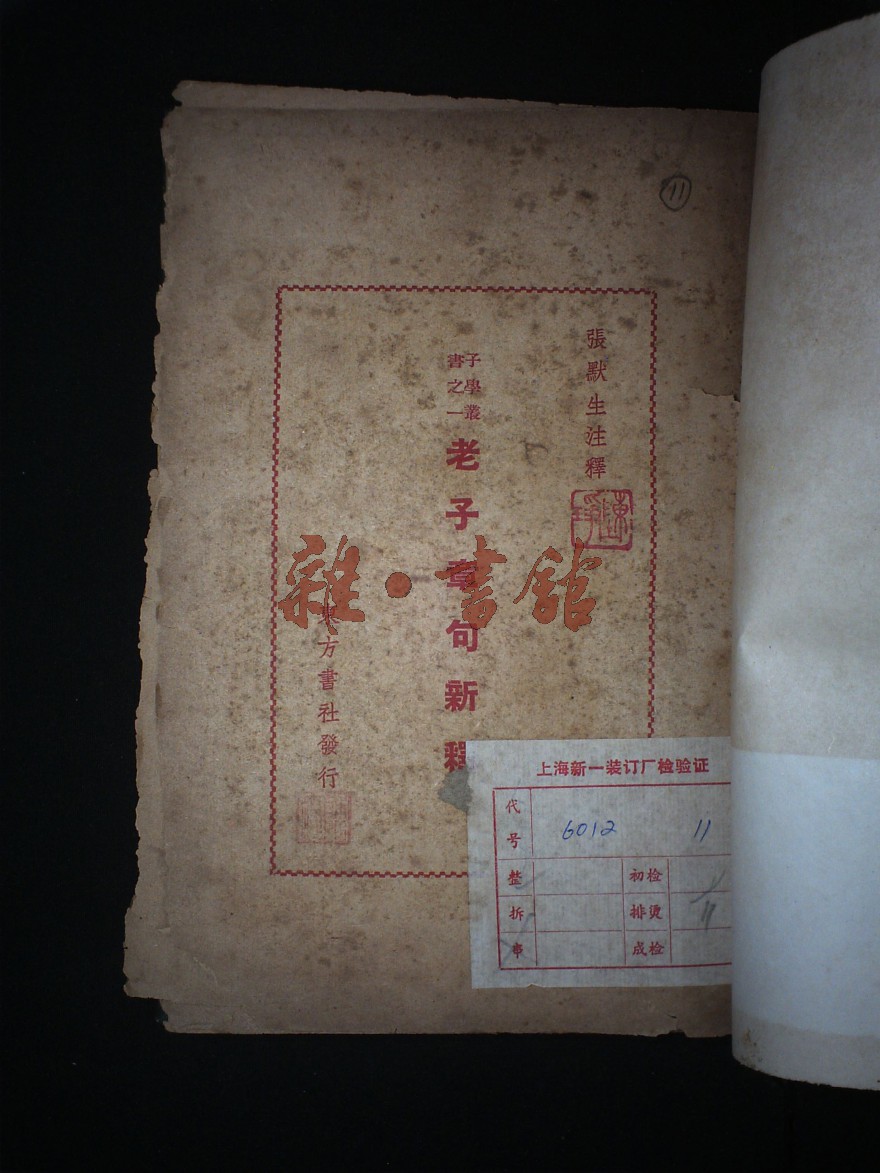 11
張默生注釋
子學叢
書之一
老子章句新釋
東方書社發行
雜·書館
上海新一装订厂检验证
代号 6012 11
整 初检
拆 排烫 11
串 成检